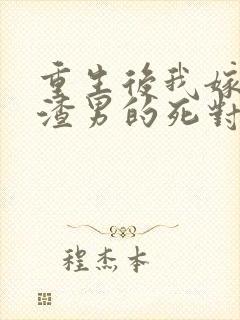 重生後我嫁
渣男的死對
程杰本